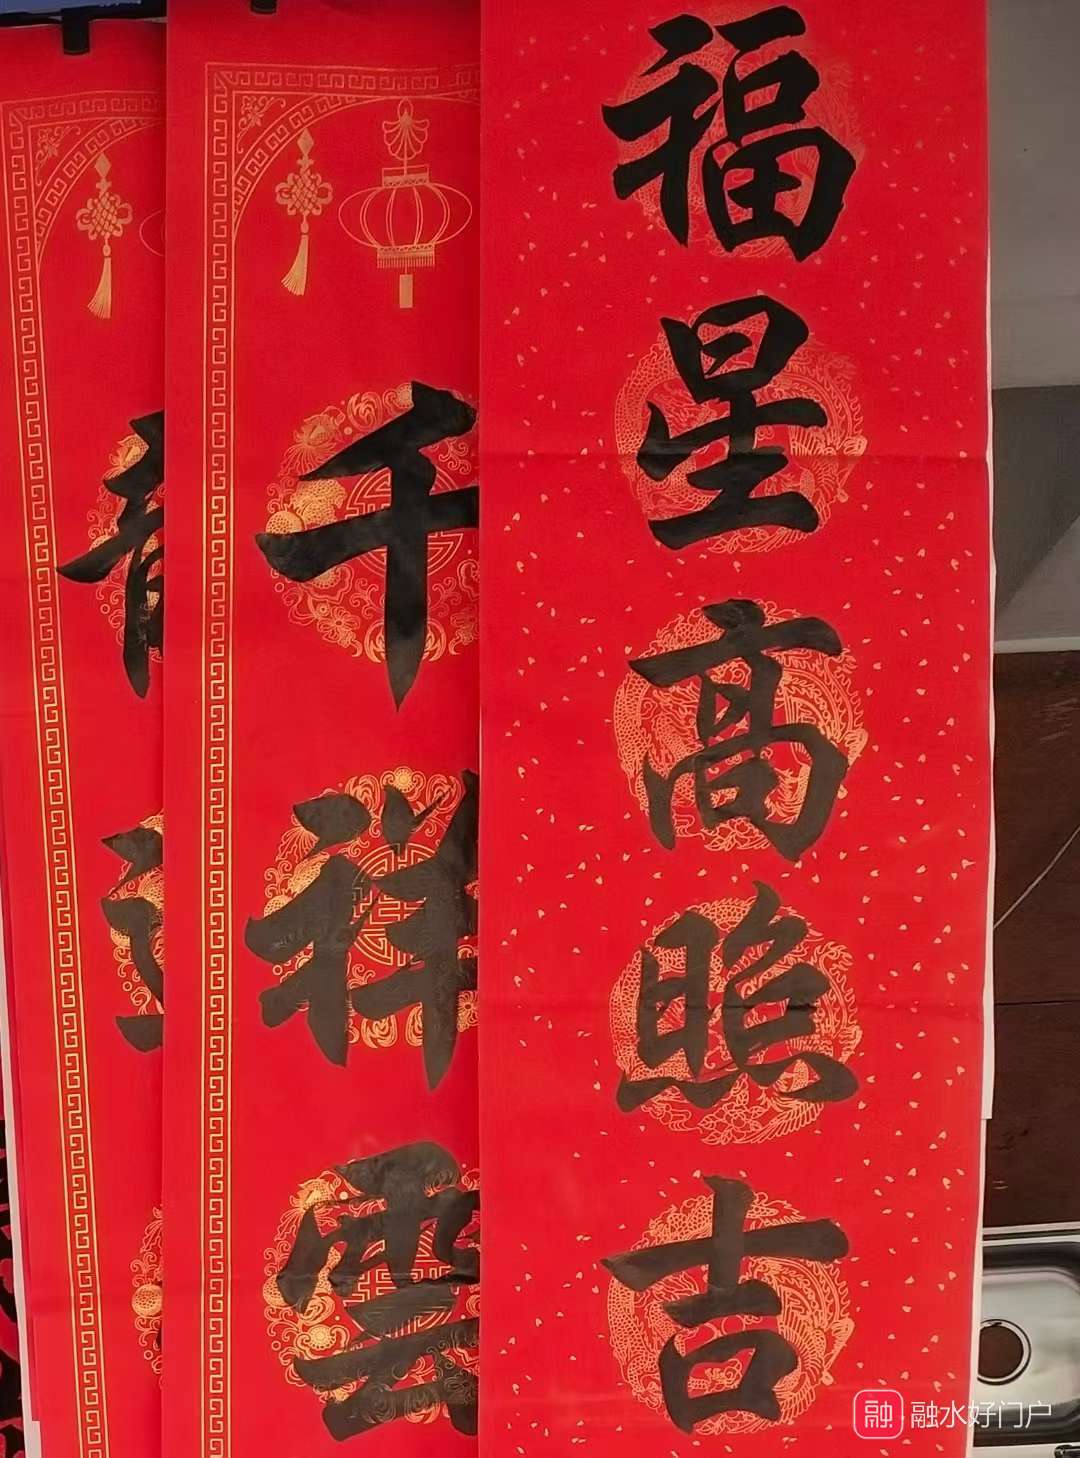 福星高照吉
千祥雲
融 融水好门户